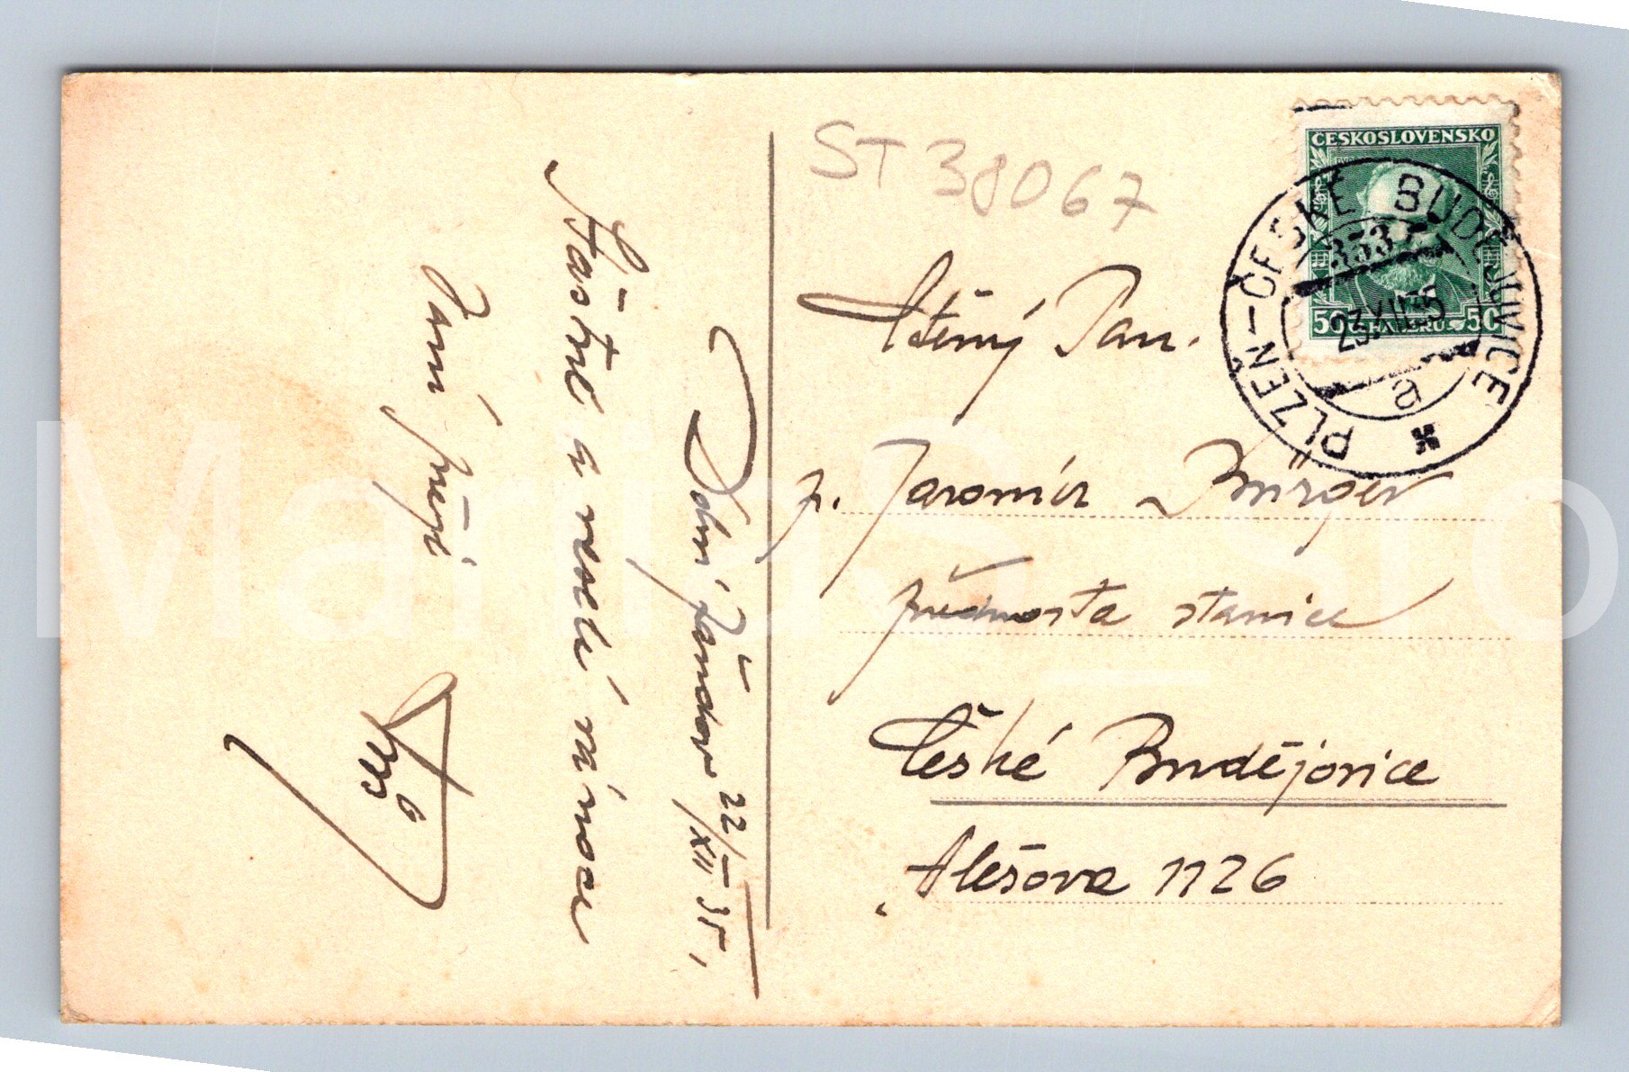 Dolní Žandov 22/XII 35,
Šťastné a veselé vánoce
Vám přeje
ST 38067
Ctěný Pan.
p. Jaromír Bürger
přednosta stanice
České Budějovice
Alešova 1126
ČESKOSLOVENSKO
50 HALÉŘŮ 50
PLZEŇ-ČESKÉ BUDĚJOVICE
23.XII.35